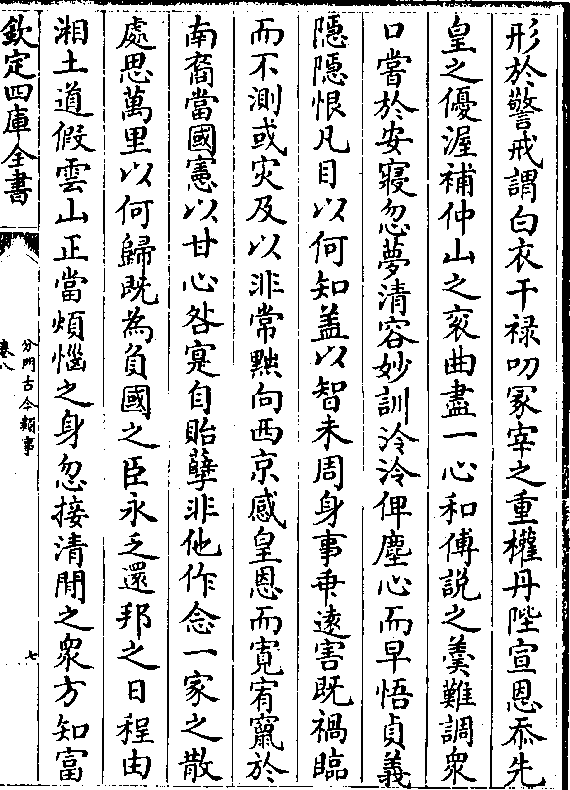 形於警戒謂白衣干禄叨冢宰之重權丹陛宣恩忝先
皇之優渥補仲山之衮曲盡一心和傅説之羮難調衆
口嘗於安寢忽夢清容妙訓泠泠俾塵心而早悟貞義
隱隱恨凡目以何知盖以智未周身事乖逺害既禍臨
而不測或灾及以非常黜向西京感皇恩而寛宥竄於
南裔當國憲以甘心咎寔自貽孽非他作念一家之散
處思萬里以何歸既為負國之臣永乏還邦之日程由
湘土道假雲山正當煩惱之身忽接清閒之衆方知富
欽定四庫全書
分門古今類事
卷八
七